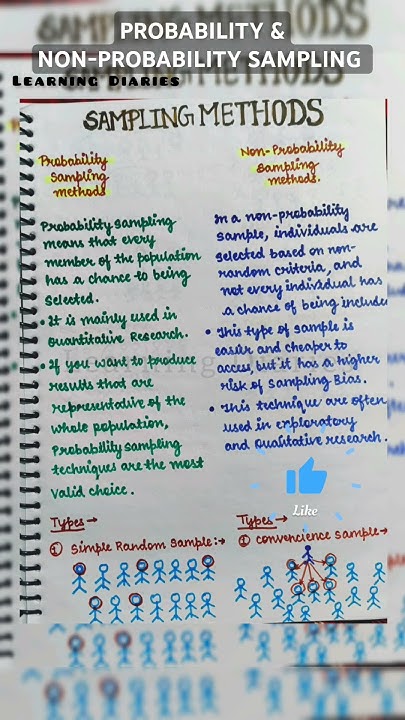 PROBABILITY &
NON-PROBABILITY SAMPLING
Learning Diaries
SAMPLING METHODS
Probability
Sampling
methods
Probability sampling
means that every
member of the population
has a chance to being
selected.
• It is mainly used in
Quantitative Research.
• If you want to produce
results that are
representative of the
whole population,
Probability sampling
techniques are the most
valid choice.
Types →
① Simple Random Sample:→
Non-Probability
Sampling
methods.
In a non-probability
sample, individuals are
selected based on non-
random criteria, and
not every individual has
a chance of being include
• This type of sample is
easier and cheaper to
access, but it has a higher
risk of sampling Bias.
• This technique are often
used in exploratory
and Qualitative research.
Like
Types →
① Convencience sample→